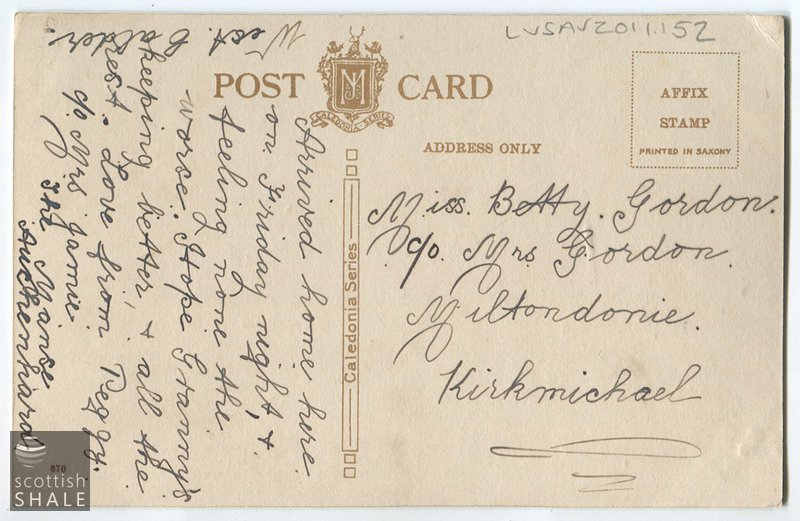 LVSAV2011.152
POST CARD
JM
CALEDONIA SERIES
ADDRESS ONLY
AFFIX
STAMP
PRINTED IN SAXONY
Caledonia Series
Miss. Betty. Gordon.
c/o. Mrs Gordon.
Miltondonie.
Kirkmichael
Arrived home here
on Friday night, &
feeling none the
worse. Hope Granny's
keeping better, & all the
rest. Love from Peggy.
c/o. Mrs Jamie
The Manse
Auchenhard
West
Calder.
870
scottish
SHALE